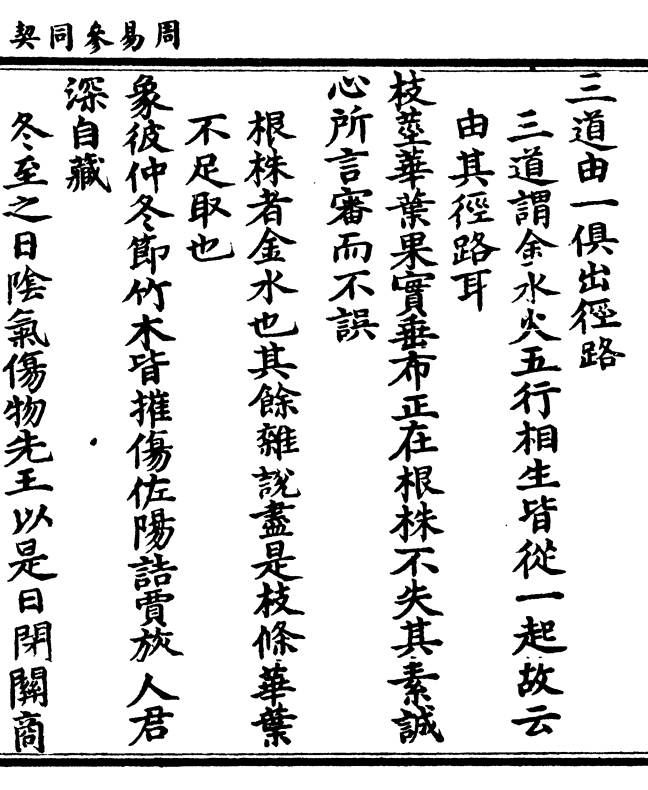 周易參同契
三道由一俱出徑路
三道謂金水火五行相生皆從一起故云
由其徑路耳
枝莖華葉果實垂布正在根株不失其素誠
心所言審而不誤
根株者金水也其餘雜說盡是枝條華葉
不足取也
象彼仲冬節竹木皆摧傷佐陽詰賈旅人君
深自藏
冬至之日陰氣傷物先王以是日閉關商